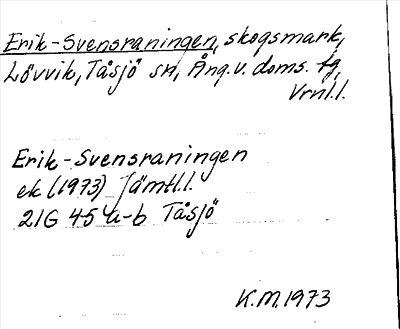 Erik-Svensraningen, skogsmark,
Lövvik, Tåsjö sn, Ång. v. doms. tg,
Vrnl.l.
Erik-Svensraningen
ek (1973) Jämtl.l.
21G 45 a-b Tåsjö
K.M. 1973